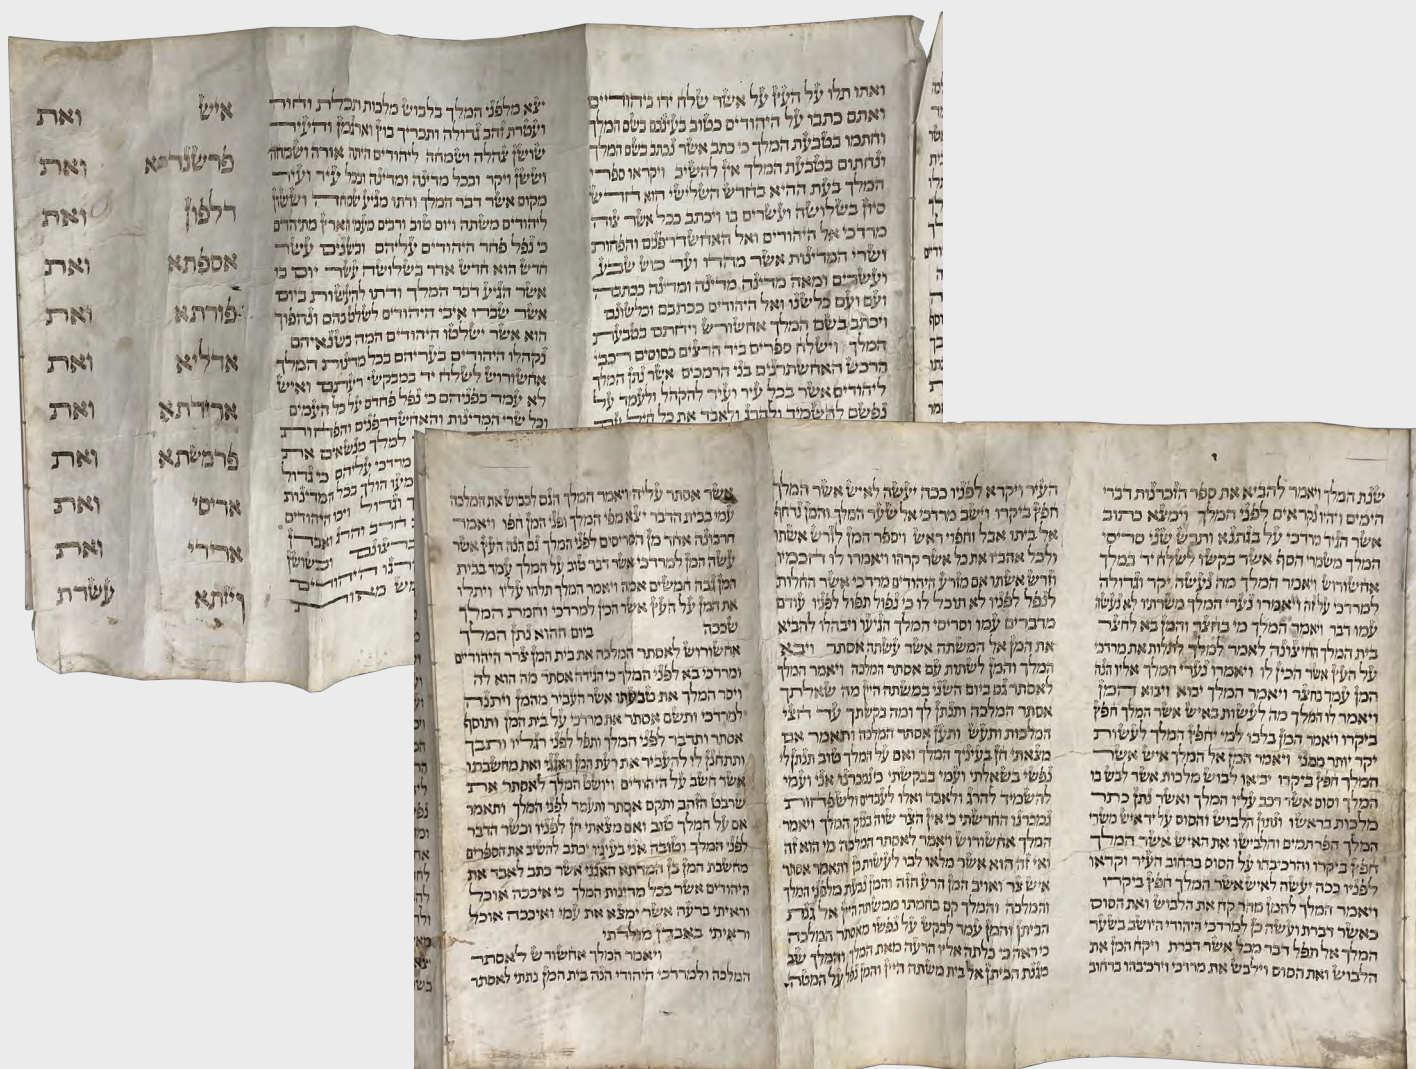 ואתו תלו על העץ על אשר שלח ידו ביהודיים
ואתם כתבו על היהודים כטוב בעיניכם בשם המלך
וחתמו בטבעת המלך כי כתב אשר נכתב בשם המלך
ונחתום בטבעת המלך אין להשיב ויקראו ספרי
המלך בעת ההיא בחדש השלישי הוא חדש
סיון בשלושה ועשרים בו ויכתב ככל אשר צוה
מרדכי אל היהודים ואל האחשדרפנים והפחות
ושרי המדינות אשר מהדו ועד כוש שבע
ועשרים ומאה מדינה מדינה ומדינה ככתבה
ועם ועם כלשנו ואל היהודים ככתבם וכלשונם
ויכתב בשם המלך אחשורש ויחתם בטבעת
המלך וישלח ספרים ביד הרצים בסוסים רכבי
הרכש האחשתרנים בני הרמכים אשר נתן המלך
ליהודים אשר בכל עיר ועיר להקהל ולעמד על
נפשם להשמיד ולהרג ולאבד את כל חיל עם
יצא מלפני המלך בלבוש מלכות תכלת וחור
ועטרת זהב גדולה ותכריך בוץ וארגמן והעיר
שושן צהלה ושמחה ליהודים היתה אורה ושמחה
וששן ויקר ובכל מדינה ומדינה ובכל עיר ועיר
מקום אשר דבר המלך ודתו מגיע שמחה וששון
ליהודים משתה ויום טוב ורבים מעמי הארץ מתיהדים
כי נפל פחד היהודים עליהם ובשנים עשר
חדש הוא חדש אדר בשלושה עשר יום בו
אשר הגיע דבר המלך ודתו להעשות ביום
אשר שברו איבי היהודים לשלוט בהם ונהפוך
הוא אשר ישלטו היהודים המה בשנאיהם
נקהלו היהודים בעריהם בכל מדינות המלך
אחשורוש לשלח יד במבקשי רעתם ואיש
לא עמד בפניהם כי נפל פחדם על כל העמים
וכל שרי המדינות והאחשדרפנים והפחות
למלך מנשאים את
מרדכי עליהם כי גדול
הולך בכל המדינות
וגדול ויכו היהודים
חרב והרג ואבדן
וכשושן
היהודים
איש ואת
פרשנדתא ואת
דלפון ואת
אספתא ואת
פורתא ואת
אדליא ואת
ארידתא ואת
פרמשתא ואת
אריסי ואת
ארידי ואת
ויזתא עשרת
שנת המלך ויאמר להביא את ספר הזכרנות דברי
הימים ויהיו נקראים לפני המלך וימצא כתוב
אשר הגיד מרדכי על בגתנא ותרש שני סריסי
המלך משמרי הסף אשר בקשו לשלח יד במלך
אחשורוש ויאמר המלך מה נעשה יקר וגדולה
למרדכי על זה ויאמרו נערי המלך משרתיו לא נעשה
עמו דבר ויאמר המלך מי בחצר והמן בא לחצר
בית המלך החיצונה לאמר למלך לתלות את מרדכי
על העץ אשר הכין לו ויאמרו נערי המלך אליו הנה
המן עמד בחצר ויאמר המלך יבוא ויבוא המן
ויאמר לו המלך מה לעשות באיש אשר המלך חפץ
ביקרו ויאמר המן בלבו למי יחפץ המלך לעשות
יקר יותר ממני ויאמר המן אל המלך איש אשר
המלך חפץ ביקרו יביאו לבוש מלכות אשר לבש בו
המלך וסוס אשר רכב עליו המלך ואשר נתן כתר
מלכות בראשו ונתון הלבוש והסוס על יד איש משרי
המלך הפרתמים והלבישו את האיש אשר המלך
חפץ ביקרו והרכיבהו על הסוס ברחוב העיר וקראו
לפניו ככה יעשה לאיש אשר המלך חפץ ביקרו
ויאמר המלך להמן מהר קח את הלבוש ואת הסוס
כאשר דברת ועשה כן למרדכי היהודי היושב בשער
המלך אל תפל דבר מכל אשר דברת ויקח המן את
הלבוש ואת הסוס וילבש את מרדכי וירכיבהו ברחוב
העיר ויקרא לפניו ככה יעשה לאיש אשר המלך
חפץ ביקרו וישב מרדכי אל שער המלך והמן נדחף
אל ביתו אבל וחפוי ראש ויספר המן לזרש אשתו
ולכל אהביו את כל אשר קרהו ויאמרו לו חכמיו
וזרש אשתו אם מזרע היהודים מרדכי אשר החלות
לנפל לפניו לא תוכל לו כי נפול תפול לפניו עודם
מדברים עמו וסריסי המלך הגיעו ויבהלו להביא
את המן אל המשתה אשר עשתה אסתר ויבא
המלך והמן לשתות עם אסתר המלכה ויאמר המלך
לאסתר גם ביום השני במשתה היין מה שאלתך
אסתר המלכה ותנתן לך ומה בקשתך עד חצי
המלכות ותעש ותען אסתר המלכה ותאמר אם
מצאתי חן בעיניך המלך ואם על המלך טוב תנתן לי
נפשי בשאלתי ועמי בבקשתי כי נמכרנו אני ועמי
להשמיד להרג ולאבד ואלו לעבדים ולשפחות
נמכרנו החרשתי כי אין הצר שוה בנזק המלך ויאמר
המלך אחשורוש ויאמר לאסתר המלכה מי הוא זה
ואי זה הוא אשר מלאו לבו לעשות כן ותאמר אסתר
איש צר ואויב המן הרע הזה והמן נבעת מלפני המלך
והמלכה והמלך קם בחמתו ממשתה היין אל גנת
הביתן והמן עמד לבקש על נפשו מאסתר המלכה
כי ראה כי כלתה אליו הרעה מאת המלך והמלך שב
מגנת הביתן אל בית משתה היין והמן נפל על המטה
אשר אסתר עליה ויאמר המלך הגם לכבוש את המלכה
עמי בבית הדבר יצא מפי המלך ופני המן חפו ויאמר
חרבונה אחד מן הסריסים לפני המלך גם הנה העץ אשר
עשה המן למרדכי אשר דבר טוב על המלך עמד בבית
המן גבה חמשים אמה ויאמר המלך תלהו עליו ויתלו
את המן על העץ אשר הכין למרדכי וחמת המלך
שככה ביום ההוא נתן המלך
אחשורוש לאסתר המלכה את בית המן צרר היהודים
ומרדכי בא לפני המלך כי הגידה אסתר מה הוא לה
ויסר המלך את טבעתו אשר העביר מהמן ויתנה
למרדכי ותשם אסתר את מרדכי על בית המן ותוסף
אסתר ותדבר לפני המלך ותפל לפני רגליו ותבך
ותתחנן לו להעביר את רעת המן האגגי ואת מחשבתו
אשר חשב על היהודים ויושט המלך לאסתר את
שרבט הזהב ותקם אסתר ותעמד לפני המלך ותאמר
אם על המלך טוב ואם מצאתי חן לפניו וכשר הדבר
לפני המלך וטובה אני בעיניו יכתב להשיב את הספרים
מחשבת המן בן המדתא האגגי אשר כתב לאבד את
היהודים אשר בכל מדינות המלך כי איככה אוכל
וראיתי ברעה אשר ימצא את עמי ואיככה אוכל
וראיתי באבדן מולדתי
ויאמר המלך אחשורש לאסתר
המלכה ולמרדכי היהודי הנה בית המן נתתי לאסתר